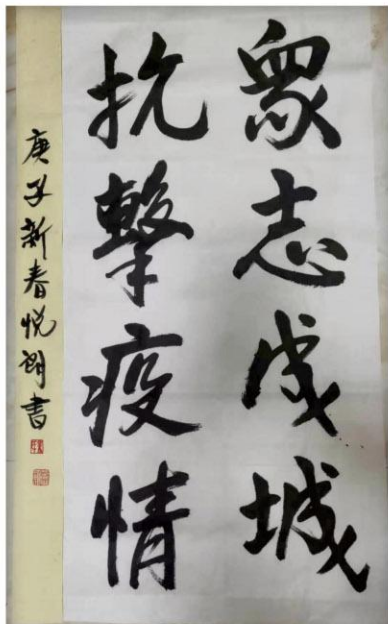 眾志成城
抗擊疫情
庚子新春悦朗書